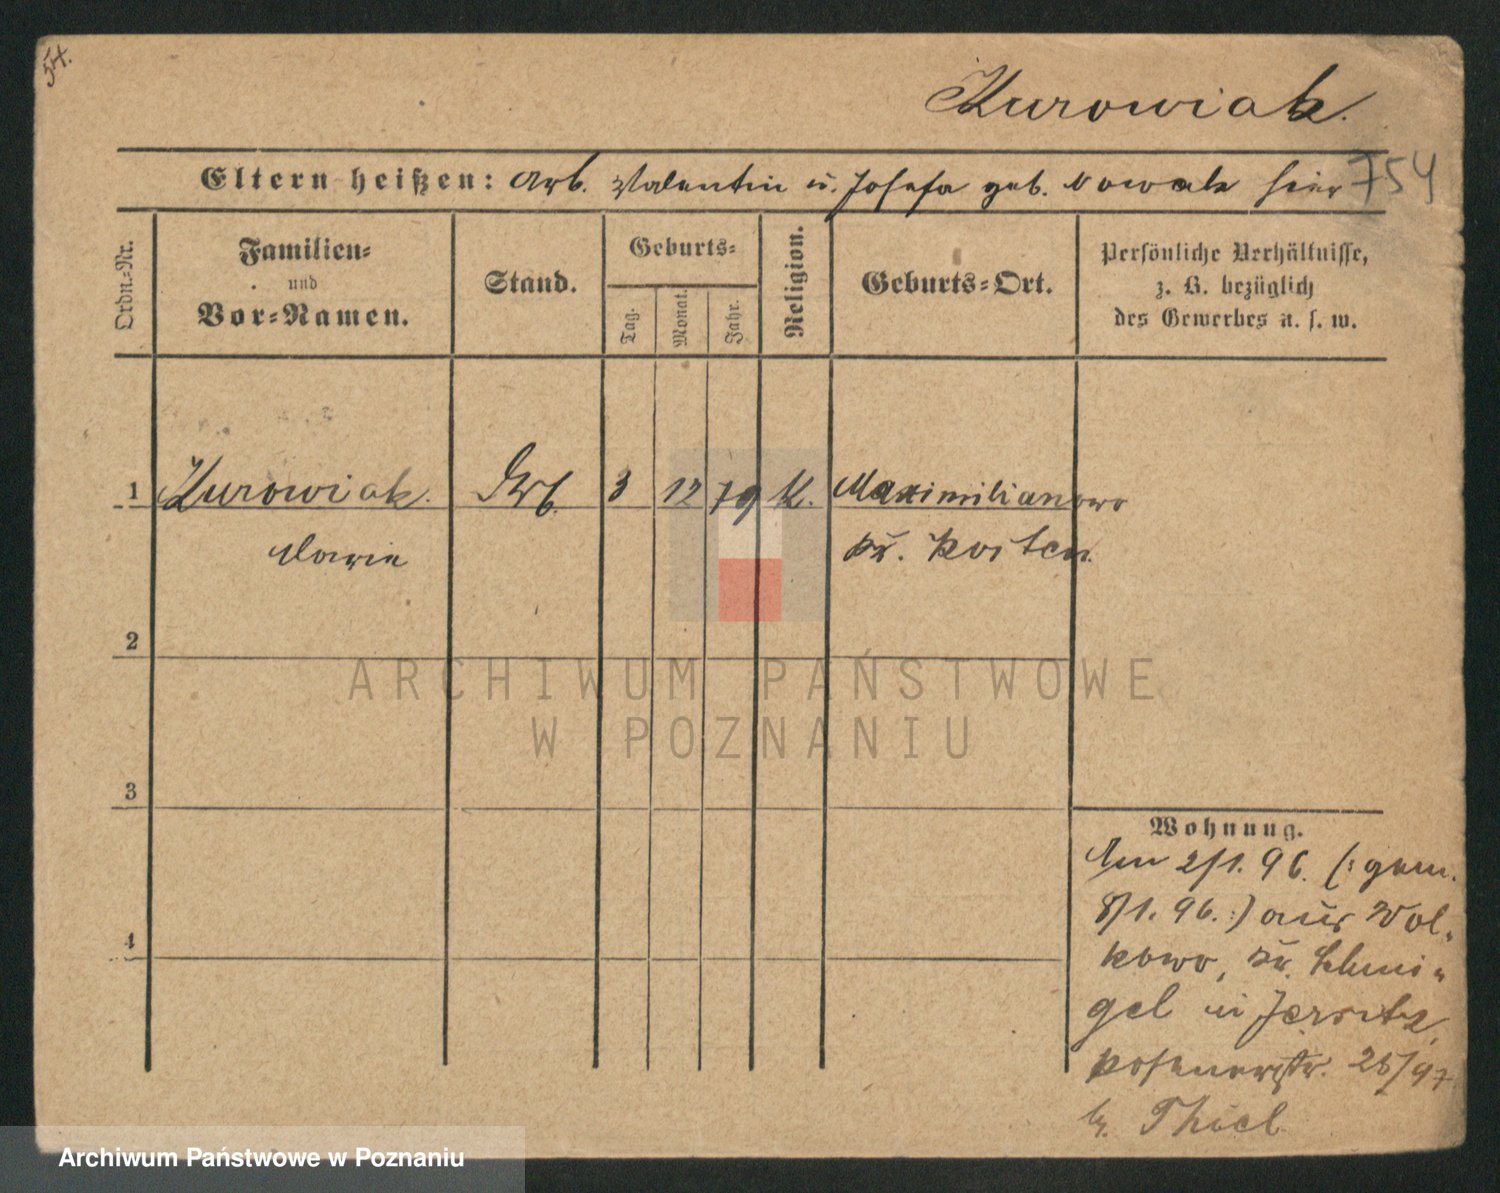 54.
Kurowiak.
Eltern heißen: Arb. Valentin u. Josefa geb. Nowak hier
754
Ordn.-Nr.
Familien-
und
Vor-Namen.
Stand.
Geburts-
Tag.
Monat.
Jahr.
Religion.
Geburts-Ort.
Persönliche Verhältnisse,
z. B. bezüglich
des Gewerbes u. s. w.
1 Kurowiak. Arb. 3 12 79 K. Maximilianowo
Marie Kr. Kosten.
2
ARCHIWUM PAŃSTWOWE
W POZNANIU
3
Wohnung.
Am 2/1. 96. (: gem.
8/1. 96. :) aus Wol-
kowo, Kr. Schmi-
gel in Jersitz,
Posenerstr. 28/97
b. Thiel
4
Archiwum Państwowe w Poznaniu